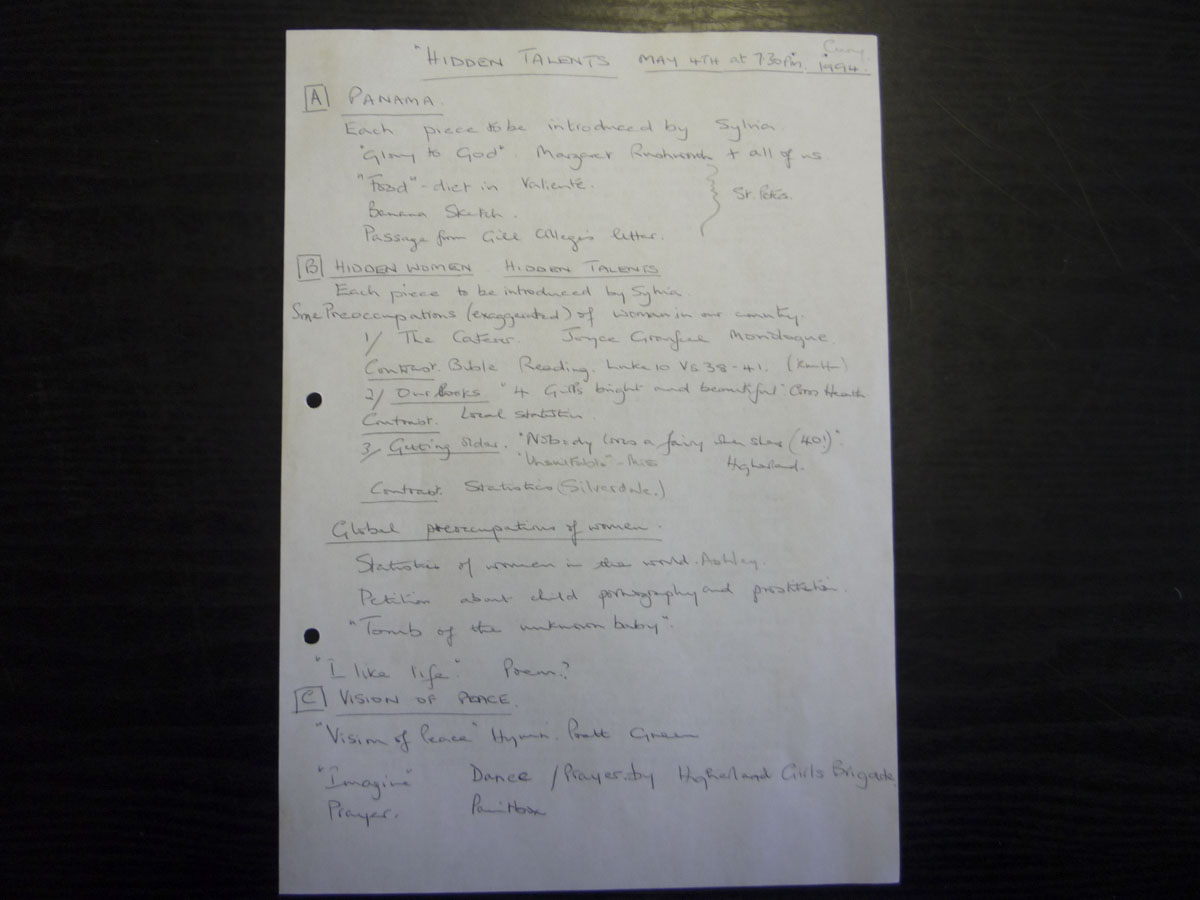 "HIDDEN TALENTS MAY 4TH at 7.30pm. 1994.
A PANAMA.
Each piece to be introduced by Sylvia.
"Glory to God" Margaret + all of us
"Food" - diet in Valiente.
Banana Sketch.
Passage from Gill letter.
St. Petes.
B HIDDEN WOMEN HIDDEN TALENTS
Each piece to be introduced by Sylvia.
Some Preoccupations (exaggerated) of women in our country.
1/ The Caterer. Joyce Grenfell Monologue.
Contrast. Bible Reading. Luke 10 Vs 38-41.
2/ Our looks "4 Girls bright and beautiful" Cross Heath
Contrast. Local statistics.
3/ Getting older. "Nobody loves a fairy when shes (40!)".
Higherland.
Contrast. Statistics (Silverdale.)
Global preoccupations of women.
Statistics of women in the world. Ashley.
Petition about child pornography and prostitution.
"Tomb of the unknown baby".
"I like life". Poem.?
C VISION OF PEACE.
"Vision of Peace" Hymn. Pratt Green
"Imagine" Dance / Prayer by Higherland Girls Brigade
Prayer. Paintbox